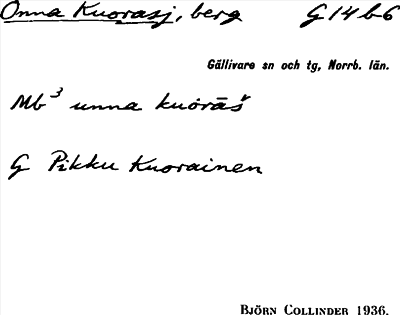 Onna Kuorasj, berg G 14 b 6
Gällivare sn och tg, Norrb. län.
Mb³ unna kuōrāš
G Pikku Kuorainen
BJÖRN COLLINDER 1936.